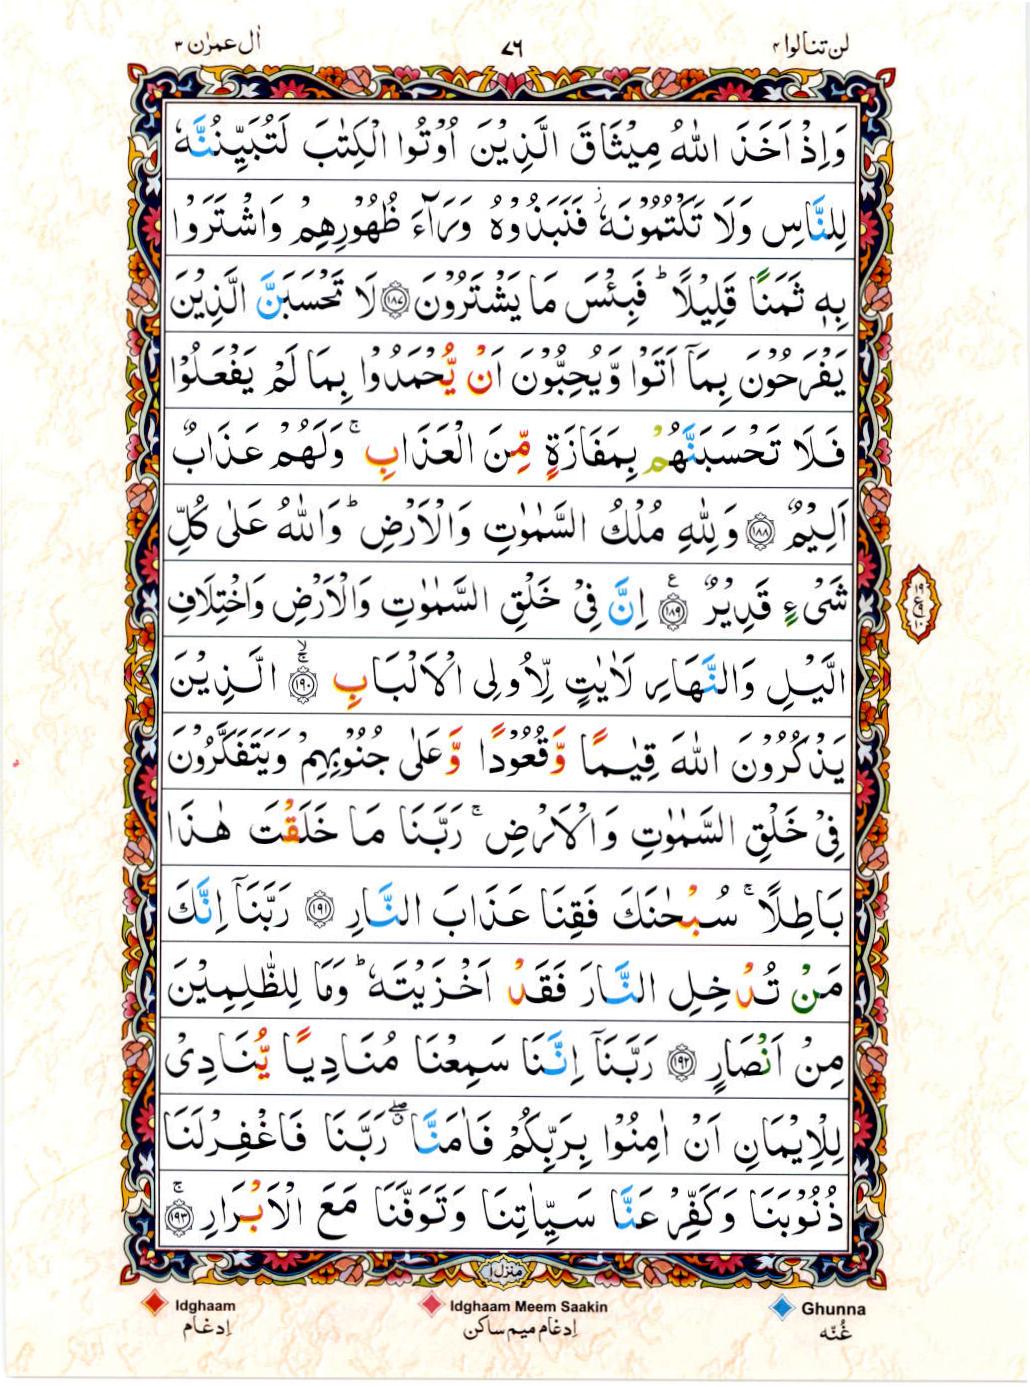 لن تنالوا ۴
۷۶
اٰل عمرٰن ۳
وَاِذْ اَخَذَ اللّٰهُ مِیْثَاقَ الَّذِیْنَ اُوْتُوا الْكِتٰبَ لَتُبَیِّنُنَّهٗ
لِلنَّاسِ وَلَا تَكْتُمُوْنَهٗ ؗ فَنَبَذُوْهُ وَرَآءَ ظُهُوْرِهِمْ وَاشْتَرَوْا
بِهٖ ثَمَنًا قَلِیْلًا ؕ فَبِئْسَ مَا یَشْتَرُوْنَ ﴿۱۸۷﴾ لَا تَحْسَبَنَّ الَّذِیْنَ
یَفْرَحُوْنَ بِمَاۤ اَتَوْا وَّیُحِبُّوْنَ اَنْ یُّحْمَدُوْا بِمَا لَمْ یَفْعَلُوْا
فَلَا تَحْسَبَنَّهُمْ بِمَفَازَةٍ مِّنَ الْعَذَابِ ۚ وَلَهُمْ عَذَابٌ
اَلِیْمٌ ﴿۱۸۸﴾ وَلِلّٰهِ مُلْكُ السَّمٰوٰتِ وَالْاَرْضِ ؕ وَاللّٰهُ عَلٰی كُلِّ
شَیْءٍ قَدِیْرٌ ﴿۱۸۹﴾ ع اِنَّ فِیْ خَلْقِ السَّمٰوٰتِ وَالْاَرْضِ وَاخْتِلَافِ
الَّیْلِ وَالنَّهَارِ لَاٰیٰتٍ لِّاُولِی الْاَلْبَابِ ﴿۱۹۰﴾ الَّذِیْنَ
یَذْكُرُوْنَ اللّٰهَ قِیٰمًا وَّقُعُوْدًا وَّعَلٰی جُنُوْبِهِمْ وَیَتَفَكَّرُوْنَ
فِیْ خَلْقِ السَّمٰوٰتِ وَالْاَرْضِ ۚ رَبَّنَا مَا خَلَقْتَ هٰذَا
بَاطِلًا ۚ سُبْحٰنَكَ فَقِنَا عَذَابَ النَّارِ ﴿۱۹۱﴾ رَبَّنَاۤ اِنَّكَ
مَنْ تُدْخِلِ النَّارَ فَقَدْ اَخْزَیْتَهٗ ؕ وَمَا لِلظّٰلِمِیْنَ
مِنْ اَنْصَارٍ ﴿۱۹۲﴾ رَبَّنَاۤ اِنَّنَا سَمِعْنَا مُنَادِیًا یُّنَادِیْ
لِلْاِیْمَانِ اَنْ اٰمِنُوْا بِرَبِّكُمْ فَاٰمَنَّا ۖۗ رَبَّنَا فَاغْفِرْ لَنَا
ذُنُوْبَنَا وَكَفِّرْ عَنَّا سَیِّاٰتِنَا وَتَوَفَّنَا مَعَ الْاَبْرَارِ ۚ ﴿۱۹۳﴾
منزل ۱
Idghaam
Idghaam Meem Saakin
Ghunna
اِدغَام
اِدغَام میم ساكن
غُنّه